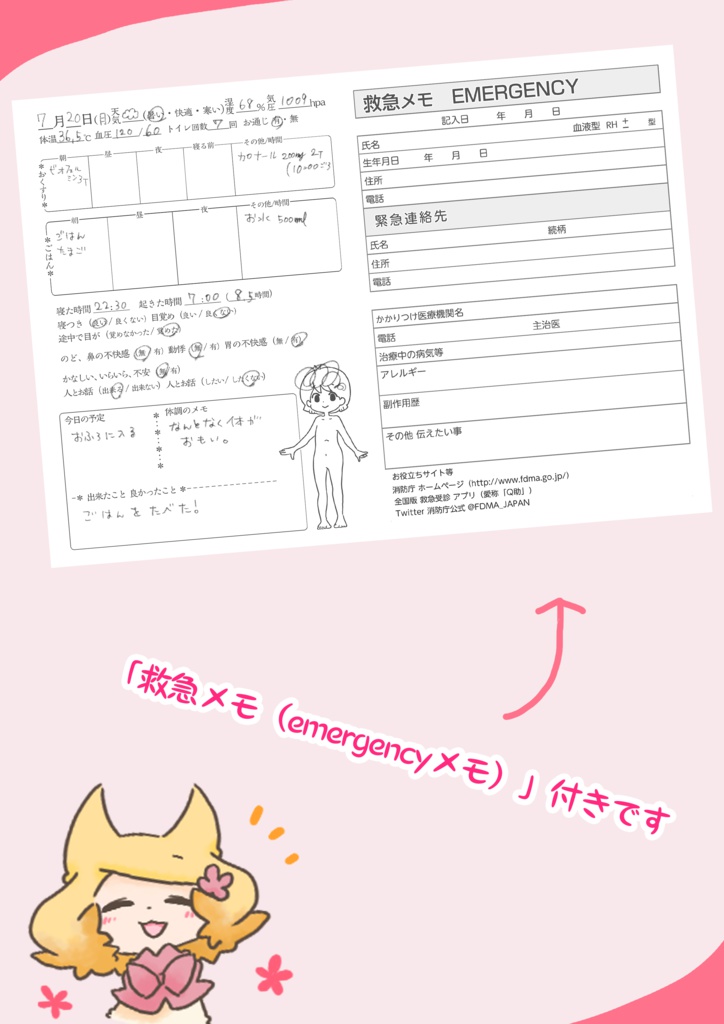 7月20日(月) 天気 (暑い・快適・寒い) 湿度 68% 気圧 1009hpa
体温 36.5℃ 血圧 120/60 トイレ回数 7回 お通じ 有・無
*おくすり*
朝 昼 夜 寝る前 その他/時間
ビオフェルミン3T
カロナール 200mg 2T
(10:00ごろ
*ごはん*
朝 昼 夜 その他/時間
ごはん
たまご
おみそ 500ml
寝た時間 22:30 起きた時間 7:00 (8.5時間)
寝つき (良い/良くない) 目覚め (良い/良くない)
途中で目が (覚めなかった/覚めた)
のど、鼻の不快感 (無/有) 動悸 (無/有) 胃の不快感 (無/有)
かなしい、いらいら、不安 (無/有)
人とお話 (出来る/出来ない) 人とお話 (したい/したくない)
今日の予定
おふろに入る
体調のメモ
なんとなく体が
おもい。
-* 出来たこと 良かったこと *-
ごはんをたべた!
救急メモ EMERGENCY
記入日 年 月 日
氏名 血液型 RH ± 型
生年月日 年 月 日
住所
電話
緊急連絡先
氏名 続柄
住所
電話
かかりつけ医療機関名
電話 主治医
治療中の病気等
アレルギー
副作用歴
その他 伝えたい事
お役立ちサイト等
消防庁 ホームページ (http://www.fdma.go.jp/)
全国版 救急受診 アプリ (愛称「Q助」)
Twitter 消防庁公式 @FDMA_JAPAN
「救急メモ(emergencyメモ)」付きです